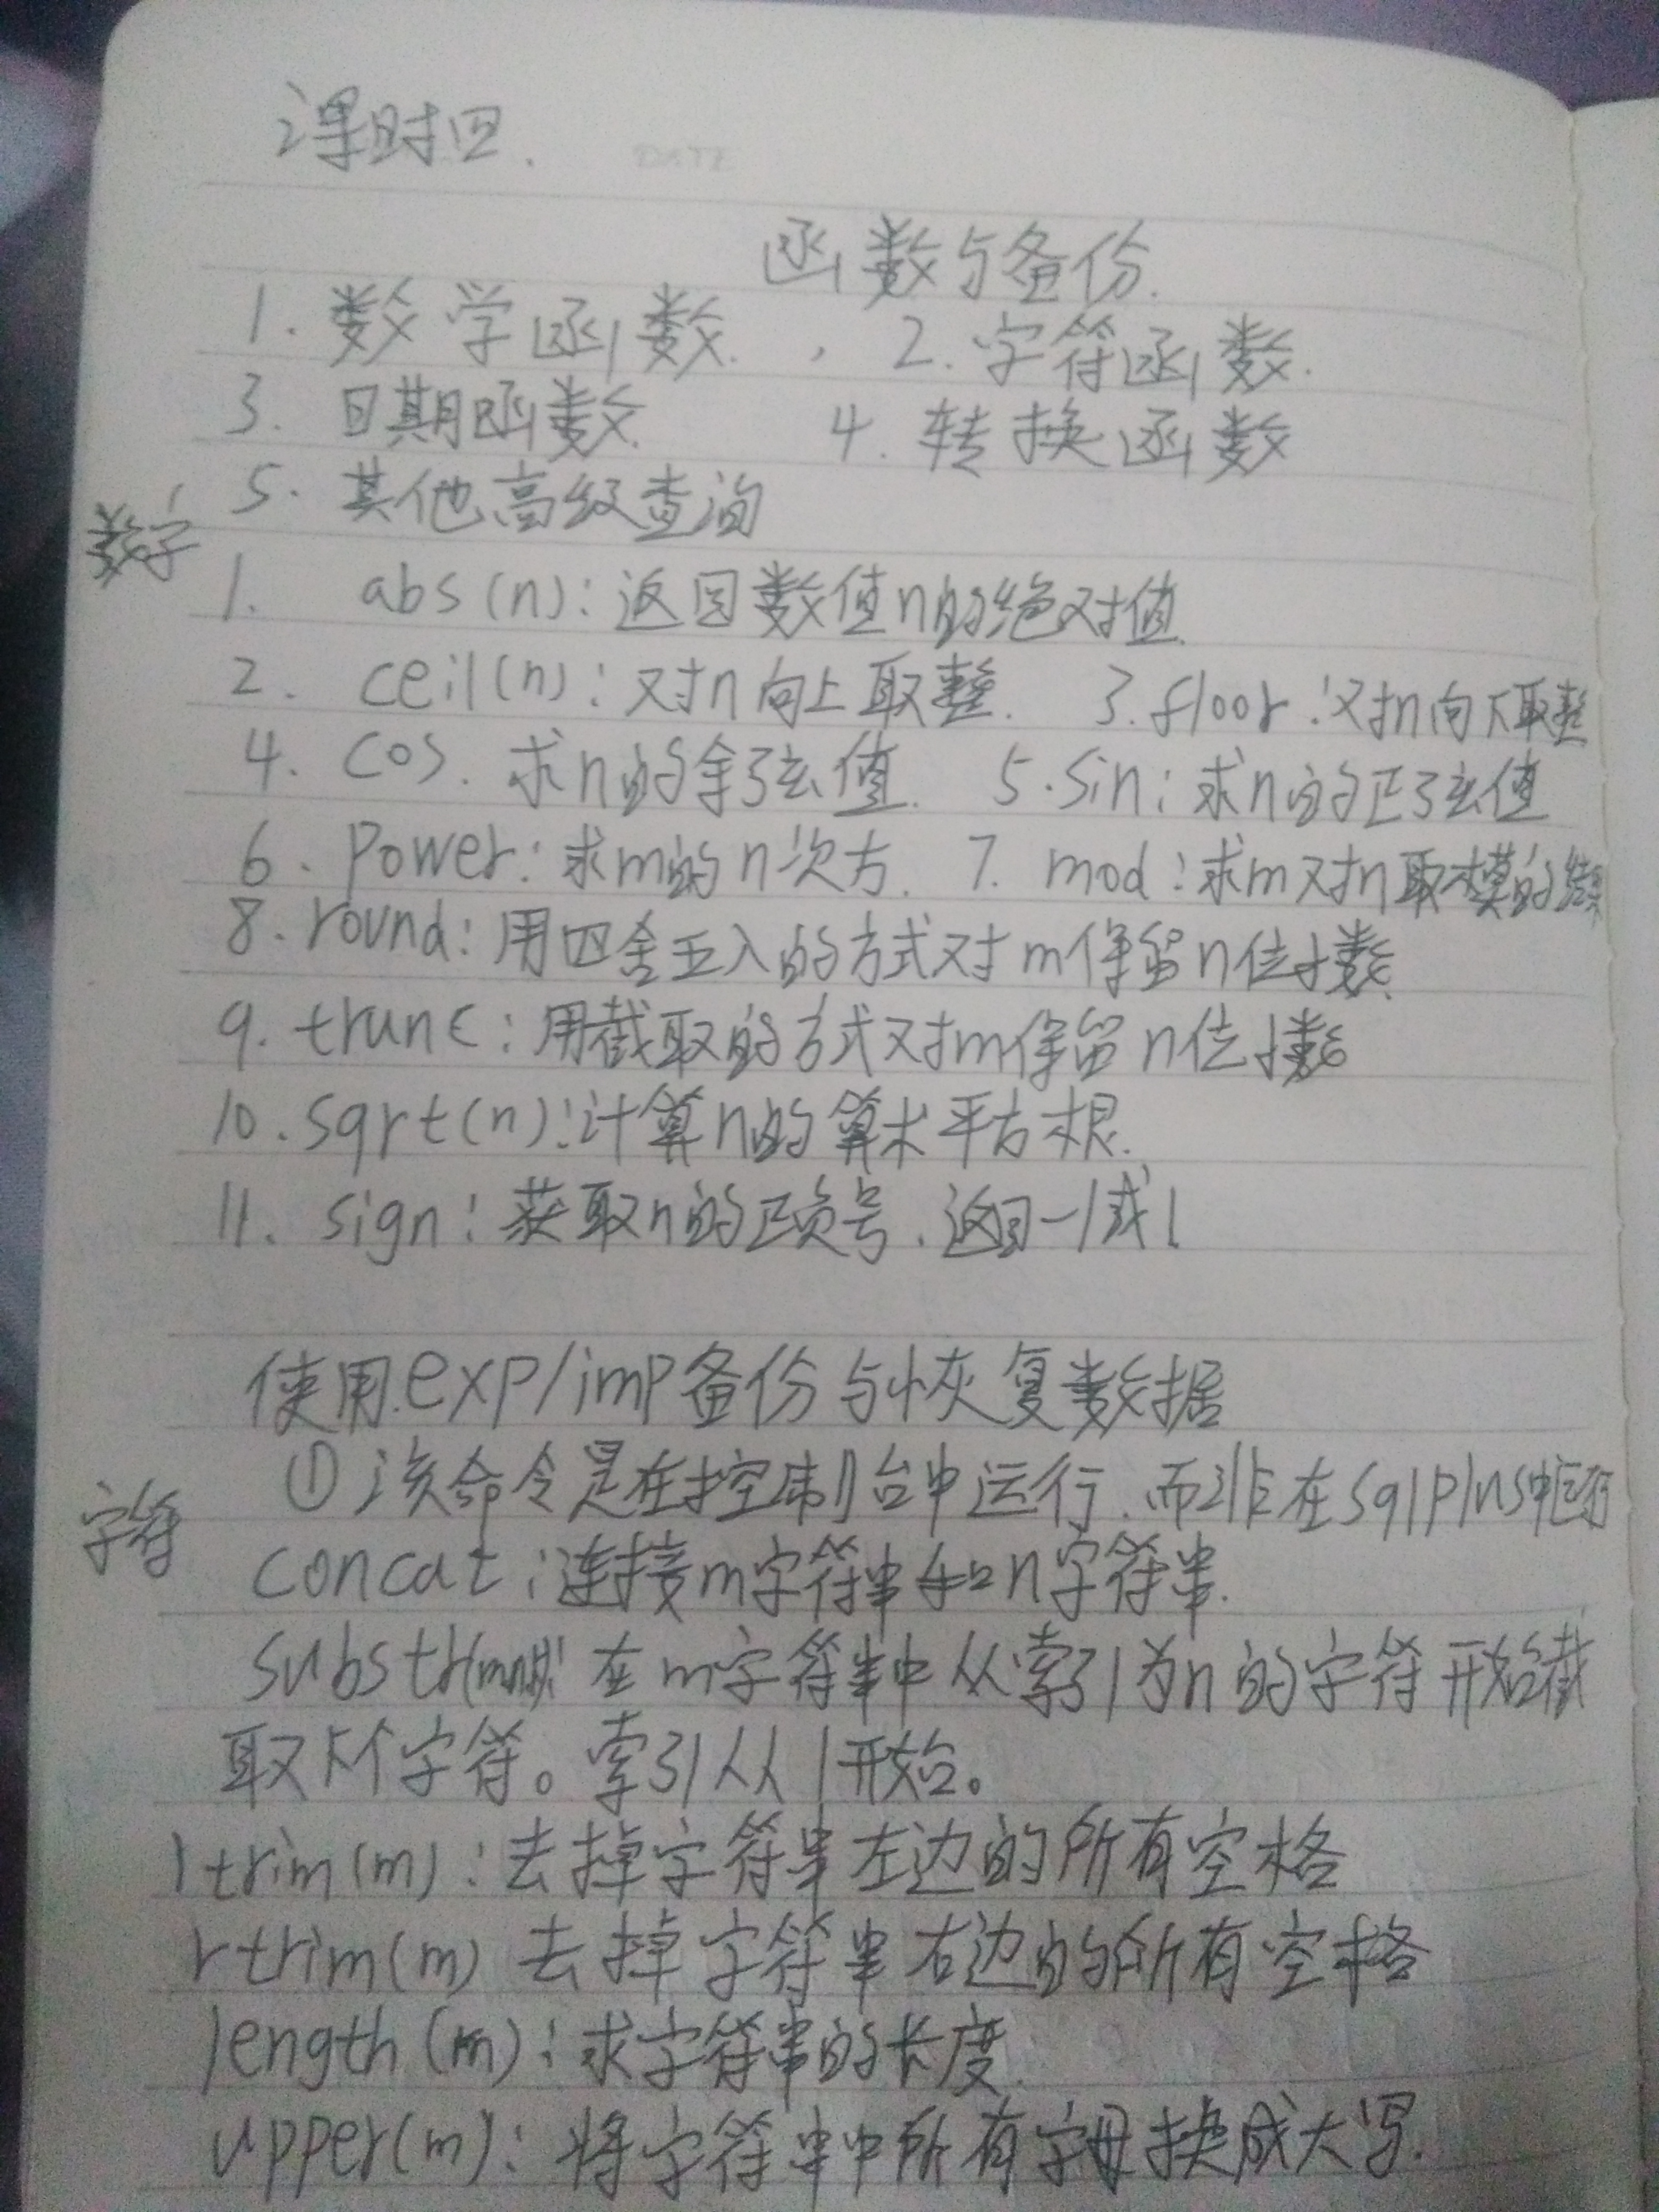 课时四.
DATE
函数与备份.
1. 数学函数. , 2. 字符函数.
3. 日期函数 4. 转换函数
5. 其他高级查询
数字
1. abs(n): 返回数值n的绝对值.
2. ceil(n): 对n向上取整. 3. floor: 对n向下取整
4. cos. 求n的余弦值. 5. sin: 求n的正弦值
6. power: 求m的n次方. 7. mod: 求m对n取模的结果
8. round: 用四舍五入的方式对m保留n位小数
9. trunc: 用截取的方式对m保留n位小数
10. sqrt(n): 计算n的算术平方根.
11. sign: 获取n的正负号. 返回-1或1
使用exp/imp备份与恢复数据
① 该命令是在控制台中运行, 而非在sqlplus中运行
字符
concat: 连接m字符串和n字符串.
substr 在m字符串中从索引为n的字符开始截
取k个字符。索引从1开始。
ltrim(m): 去掉字符串左边的所有空格
rtrim(m) 去掉字符串右边的所有空格
length(m): 求字符串的长度.
upper(m): 将字符串中所有字母换成大写.